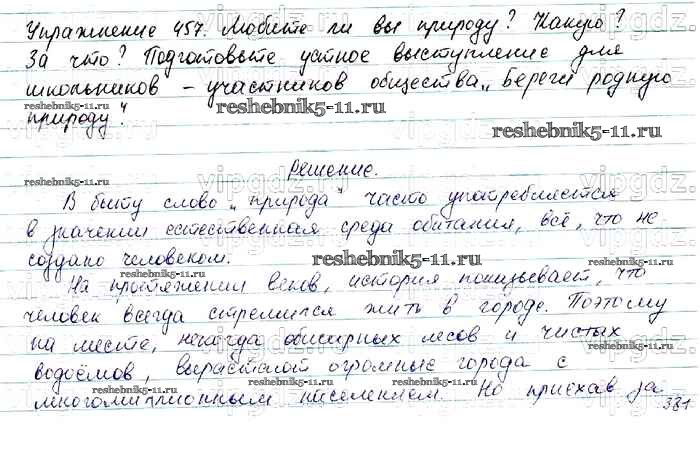 Упражнение 457. Любите ли вы природу? Какую?
За что? Подготовьте устное выступление для
школьников – участников общества „Береги родную
природу."
reshebnik5-11.ru
reshebnik5-11.ru
Решение.
В быту слово „природа" часто употребляется
в значении естественная среда обитания, всё, что не
создано человеком.
reshebnik5-11.ru
На протяжении веков, история показывает, что
человек всегда стремился жить в городе. Поэтому
на месте, некогда обширных лесов и чистых
водоёмов вырастают огромные города с
многомиллионным населением. Но приехав за
381